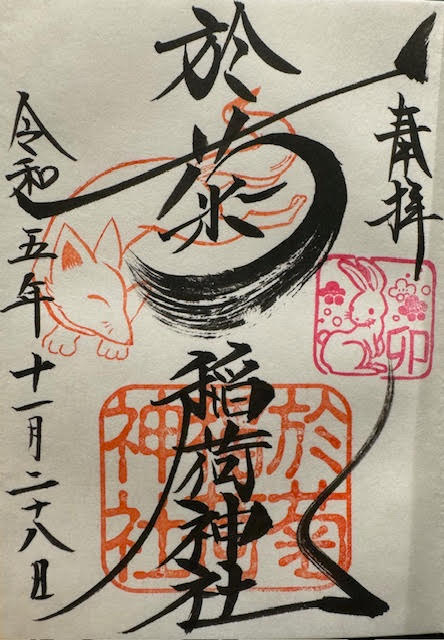 奉拝
卯
於菊稲荷神社
於菊
稲荷
神社
令和五年十一月二十八日